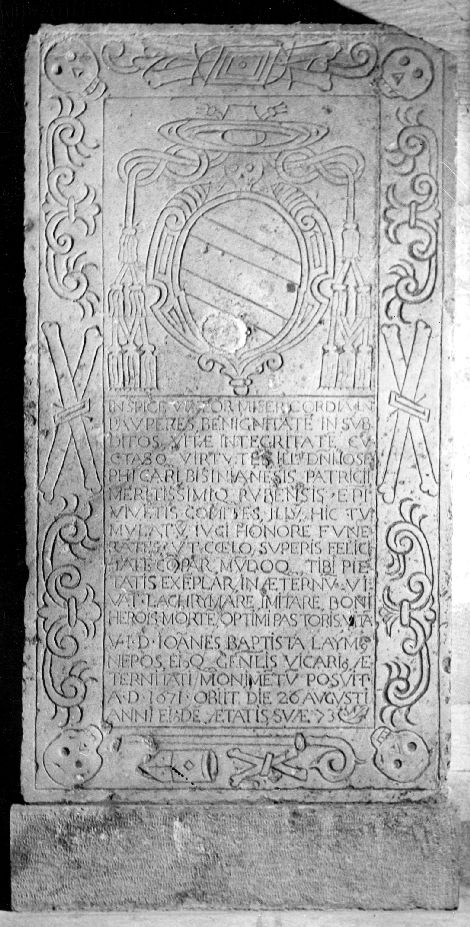 INSPICE VIATOR MISERICORDIA IN
PAUPERES, BENIGNITATE IN SUB
DITOS, VITÆ INTEGRITATE, CV
CTASQ. VIRTVTES ILL. D. NI IOSE
PHI CARI. BISINIANESIS PATRICII
MERITISSIMIQ. RUBENSIS. EPI
VIVETIS. COMITES. ILLU. HIC TU
MULATU, IUGI HONORE FUNE
RATUS. VT. COELO, SUPERIS FELICI
TATE COPAR. MVDOQ. TIBI PIE
TATIS EXEMPLAR, IN ÆTERNV. VI
VAT. LACHRYMARE, IMITARE, BONI
HEROIS MORTE, OPTIMI PASTORIS VITA
V.I.D. IOANES BAPTISTA LAYMO
NEPOS, EI.SQ. GENLIS VICARI9, Æ
TERNITATI MONIMETU POSUIT
A.D. 1671. OBIIT DIE 26 AUGUSTI
ANNI EI9DE. ÆTATIS SUÆ 73